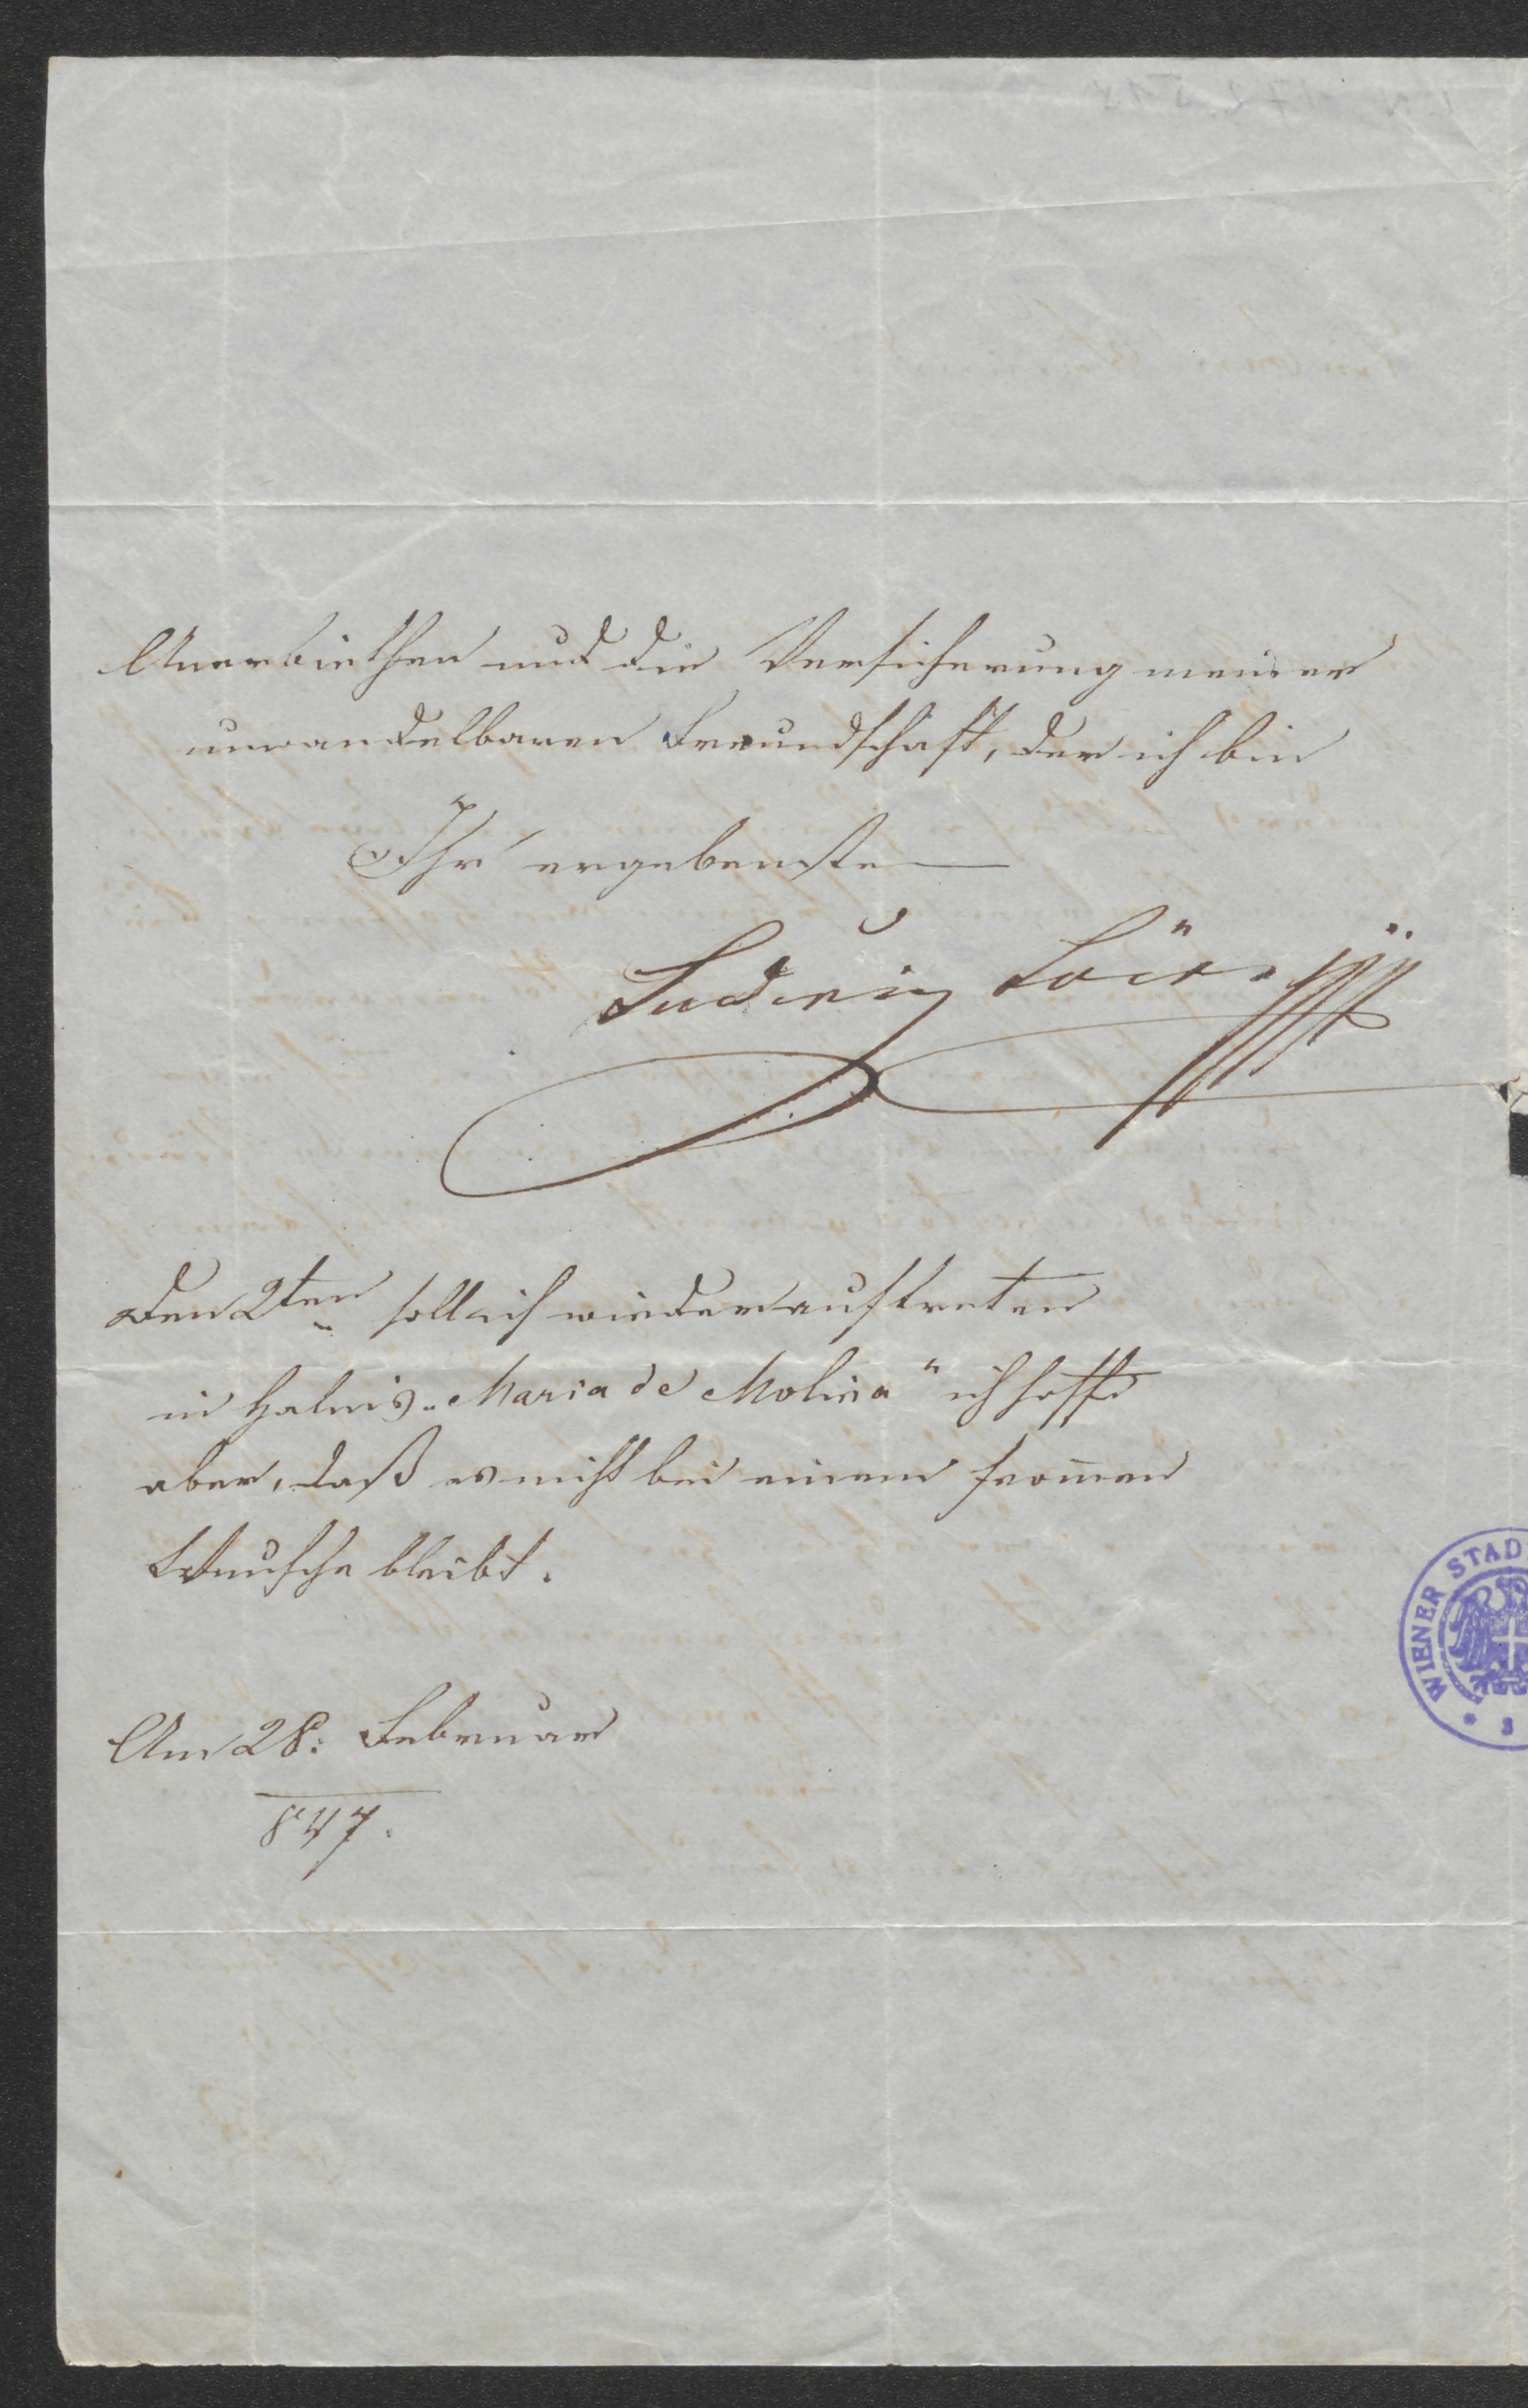 Anerbiethen und die Versicherung meiner
unwandelbaren Freundschaft, der ich bin
Ihr ergebenster
Ludwig Löwe
Den 2ten soll ich wieder auftreten
in Halm's „Maria de Molina" ich hoffe
aber, daß es nicht bei einem from̅en
Wunsche bleibt.
Am 28: Februar
847.
WIENER STAD